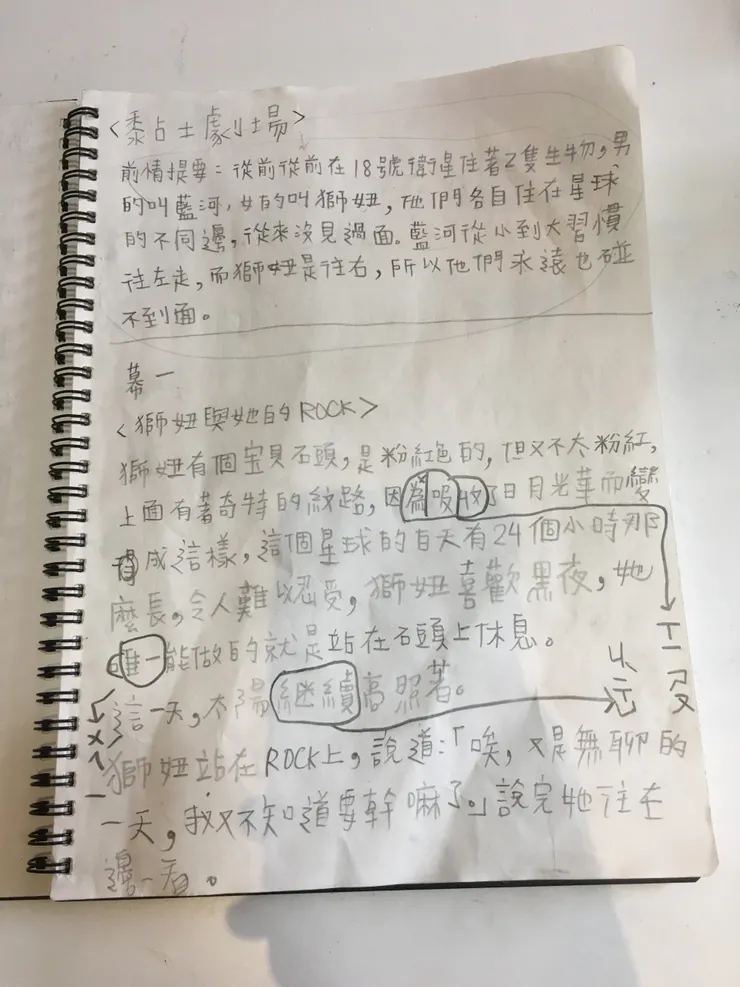 <黏土劇場>
前情提要：從前從前在18號衛星住著2隻生物，男
的叫藍河，女的叫獅妞，他們各自住在星球
的不同邊，從來沒見過面。藍河從小到大習慣
往左走，而獅妞是往右，所以他們永遠也碰
不到面。
幕一
<獅妞與她的ROCK>
獅妞有個宝贝石頭，是粉紅色的，但又不太粉紅，
上面有著奇特的紋路，因為吸收了日月光華而變
成這樣，這個星球的白天有24個小時那
麼長，令人難以忍受，獅妞喜歡黑夜，她
唯一能做的就是站在石頭上休息。
這一天，太陽繼續高照著。
獅妞站在ROCK上，說道：「唉，又是無聊的
一天，我又不知道要幹嘛了。」說完她往左
邊一看。